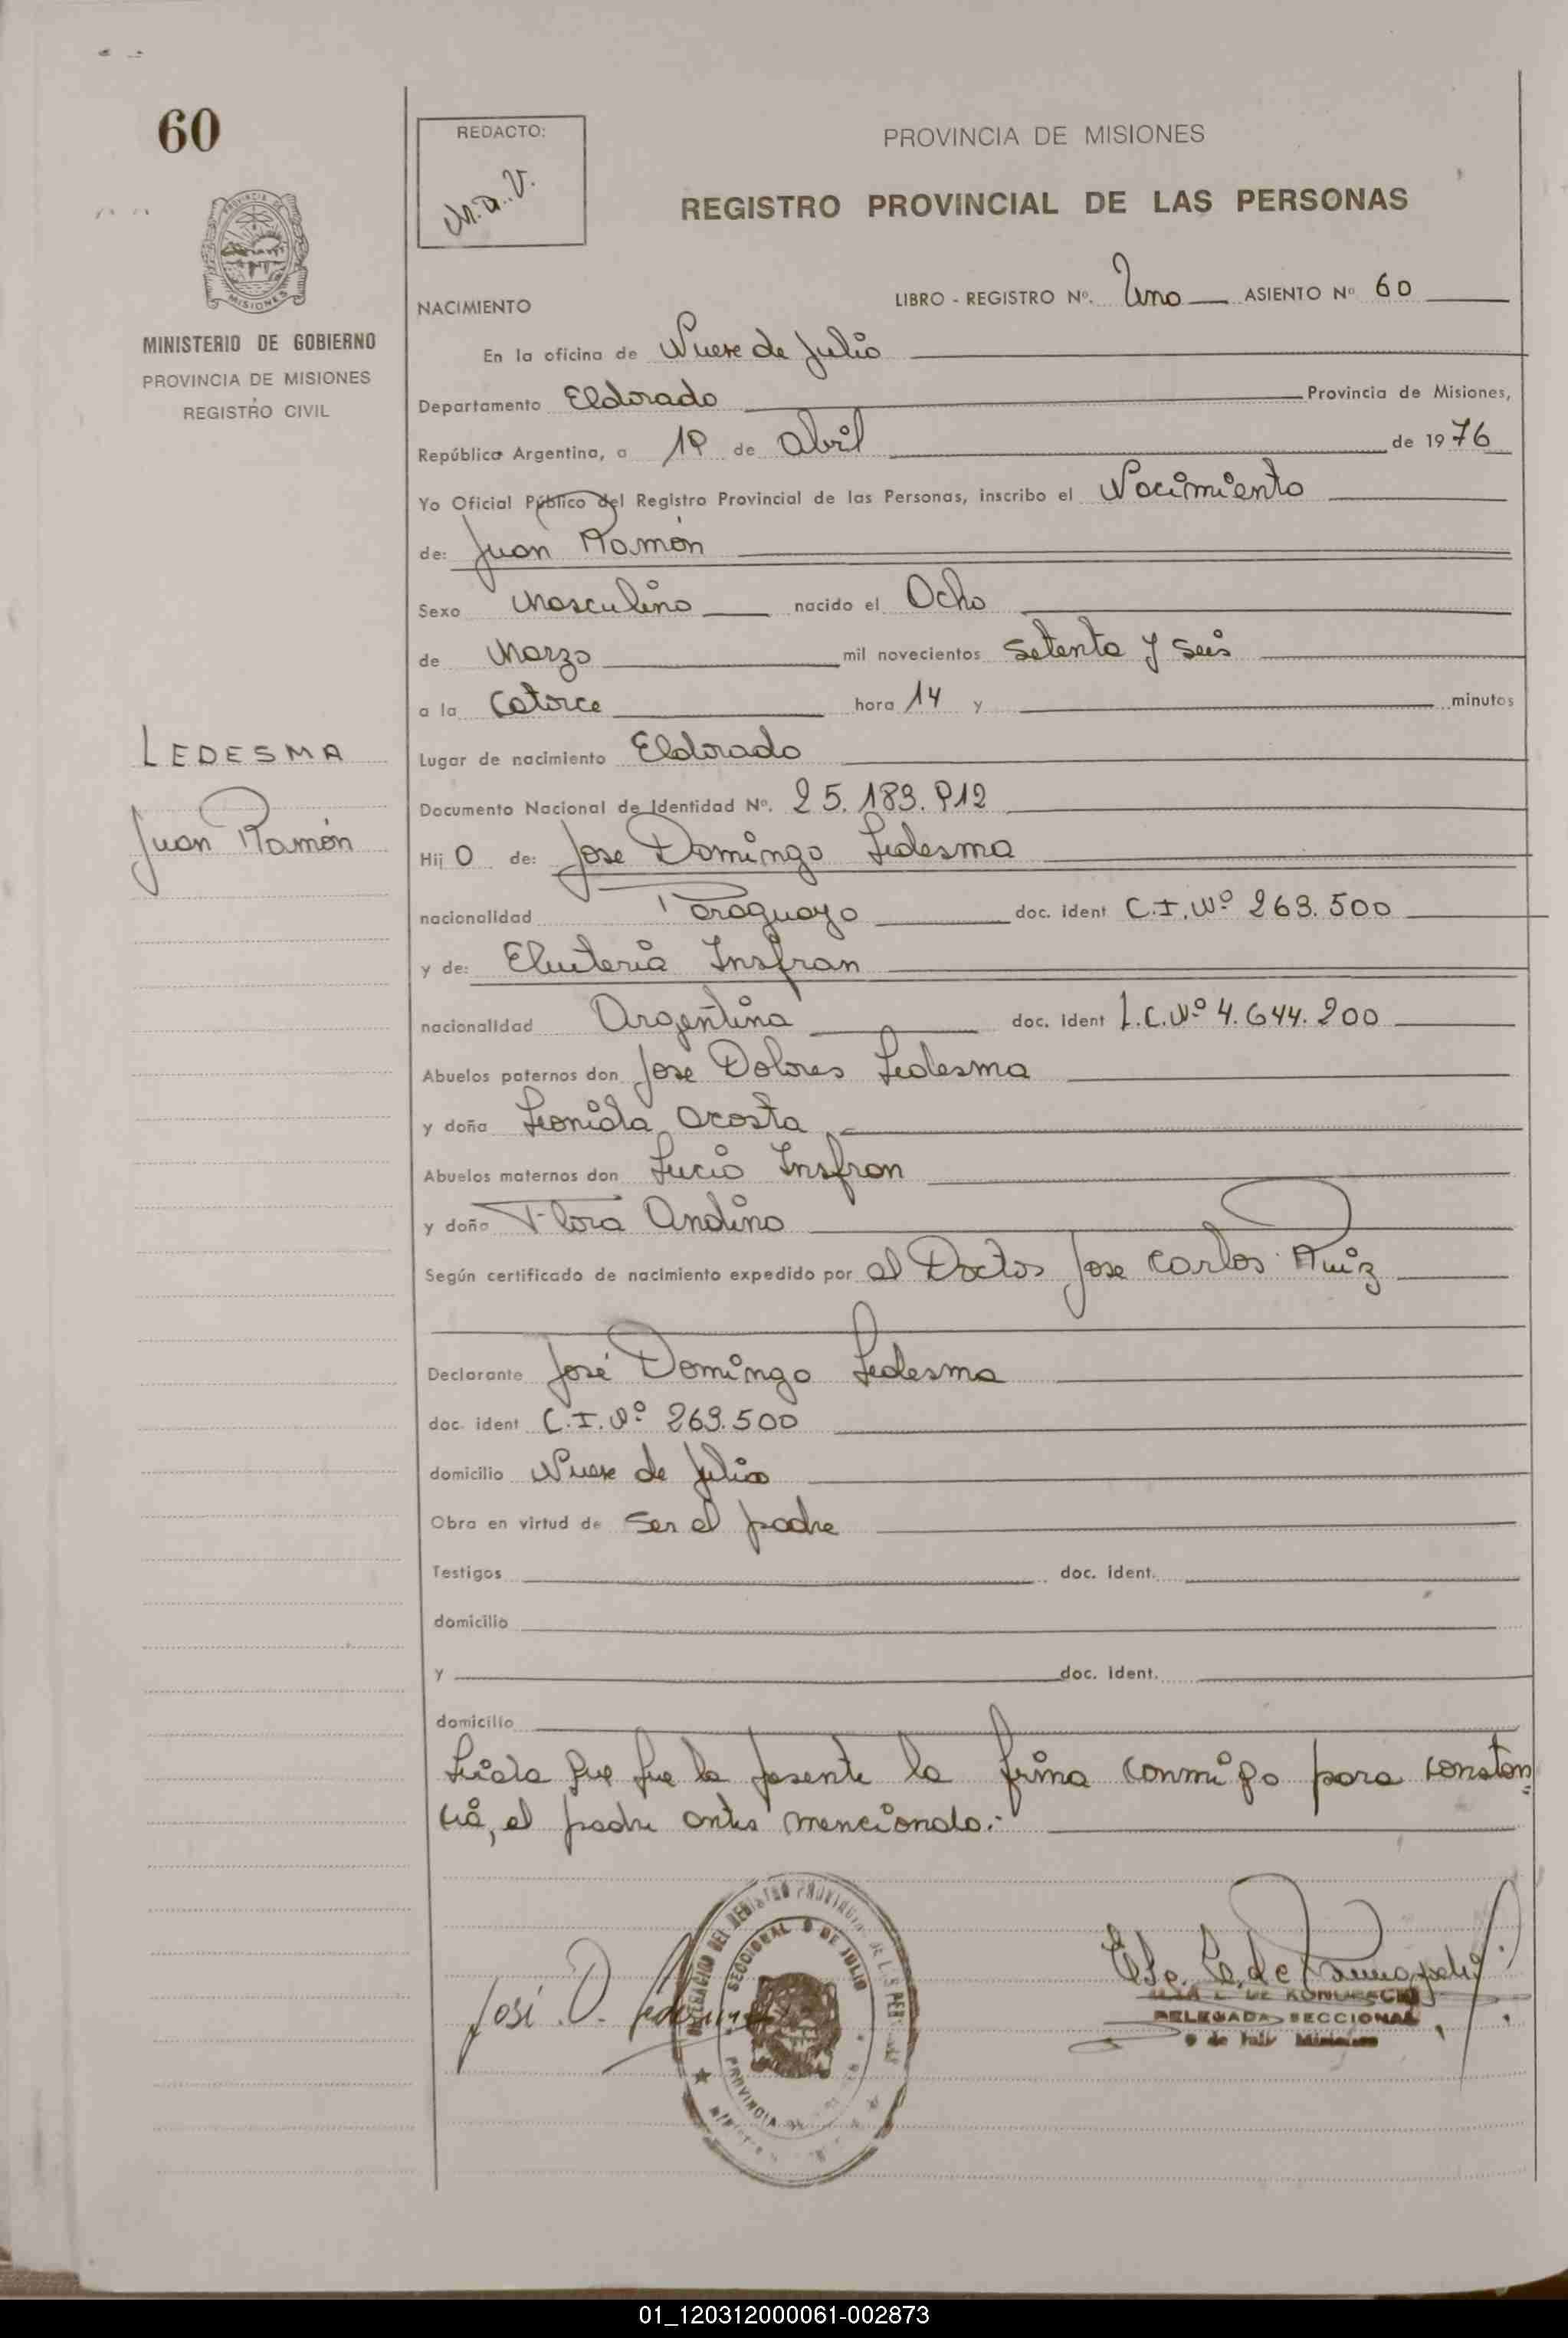 60
REDACTO:
PROVINCIA DE MISIONES
REGISTRO PROVINCIAL DE LAS PERSONAS
MISIONES
MINISTERIO DE GOBIERNO
PROVINCIA DE MISIONES
REGISTRO CIVIL
NACIMIENTO
LIBRO - REGISTRO Nº. Uno ASIENTO Nº 60
En la oficina de Nueve de Julio
Departamento Eldorado Provincia de Misiones,
República Argentina, a de Abril de 1976
Yo Oficial Público del Registro Provincial de las Personas, inscribo el Nacimiento
de: Juan Ramón
Sexo Masculino nacido el Ocho
de Marzo mil novecientos setenta y seis
a la Catorce hora 14 y minutos
LEDESMA
Juan Ramón
Lugar de nacimiento Eldorado
Documento Nacional de Identidad Nº. 25.183.912
Hij o de: Jose Domingo Ledesma
nacionalidad Paraguayo doc. ident C.I.Nº 263.500
y de: Eluiteria Insfran
nacionalidad Argentina doc. ident L.C.Nº 4.644.200
Abuelos paternos don Jose Dolores Ledesma
y doña Leonida Acosta
Abuelos maternos don Lucio Insfran
y doña Flora Andino
Según certificado de nacimiento expedido por el Doctor Jose Carlos Ruiz
Declarante José Domingo Ledesma
doc. ident C.I.Nº 263.500
domicilio Nueve de Julio
Obra en virtud de ser el padre
Testigos doc. ident.
domicilio
y doc. ident.
domicilio
Leida que fue la presente la firma conmigo para constan=
cia, el padre antes mencionado.-
José D. Ledesma
SECCIONAL 9 DE JULIO
PROVINCIA
DELEGADA SECCIONAL
9 de Julio Misiones
01_120312000061-002873